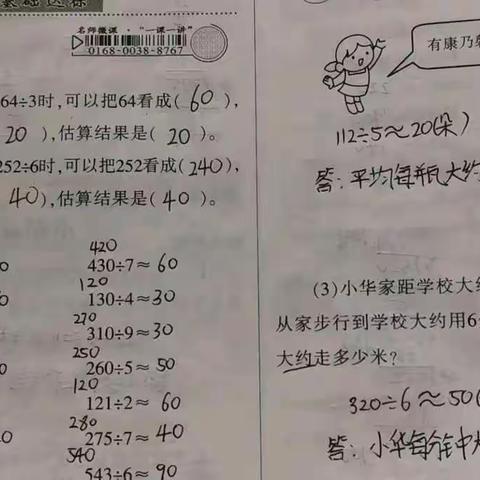 名师微课·"一课一讲"
0168-0038-8767
64÷3时,可以把64看成( 60 ),
20 ),估算结果是( 20 )。
252÷6时,可以把252看成( 240 ),
40 ),估算结果是( 40 )。
420
430÷7≈ 60
120
130÷4≈ 30
270
310÷9≈ 30
250
260÷5≈ 50
120
121÷2≈ 60
280
275÷7≈ 40
540
543÷6≈ 90
有康乃
112÷5≈20(朵)
答:平均每瓶大约
(3)小华家距学校大
从家步行到学校大约用6
大约走多少米?
320÷6≈50(
答:小华每分钟大